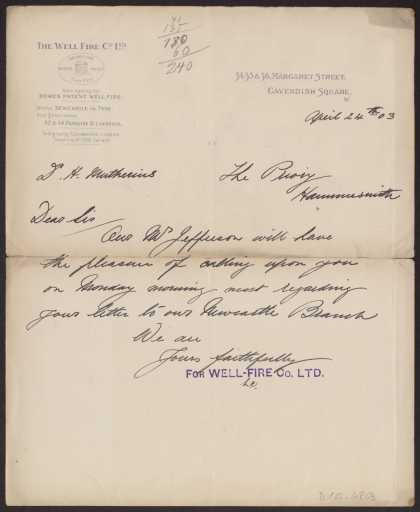 THE WELL FIRE Co LTD
BOWES PATENT WELL-FIRE.
NEWCASTLE ON TYNE
41
135
180
60
240
34, 35 & 36, MARGARET STREET,
CAVENDISH SQUARE,
W
April 24th 03
Dr H. Muthesius
The Priory
Hammersmith
Dear Sir
Our Mr Jefferson will have
the pleasure of calling upon you
on Monday morning next regarding
your letter to our Newcastle Branch
We are
Yours faithfully
FOR WELL-FIRE CO. LTD.